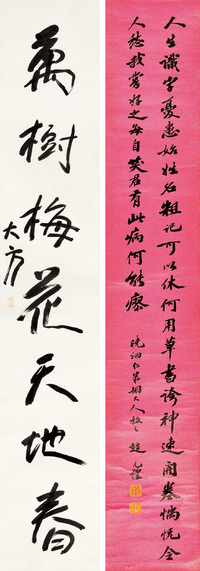 人生識字憂患始姓名粗記可以休何用草書誇神速開卷惝怳令
人愁我嘗好之每自笑君有此病何能瘳
萬樹梅花天地春
大方